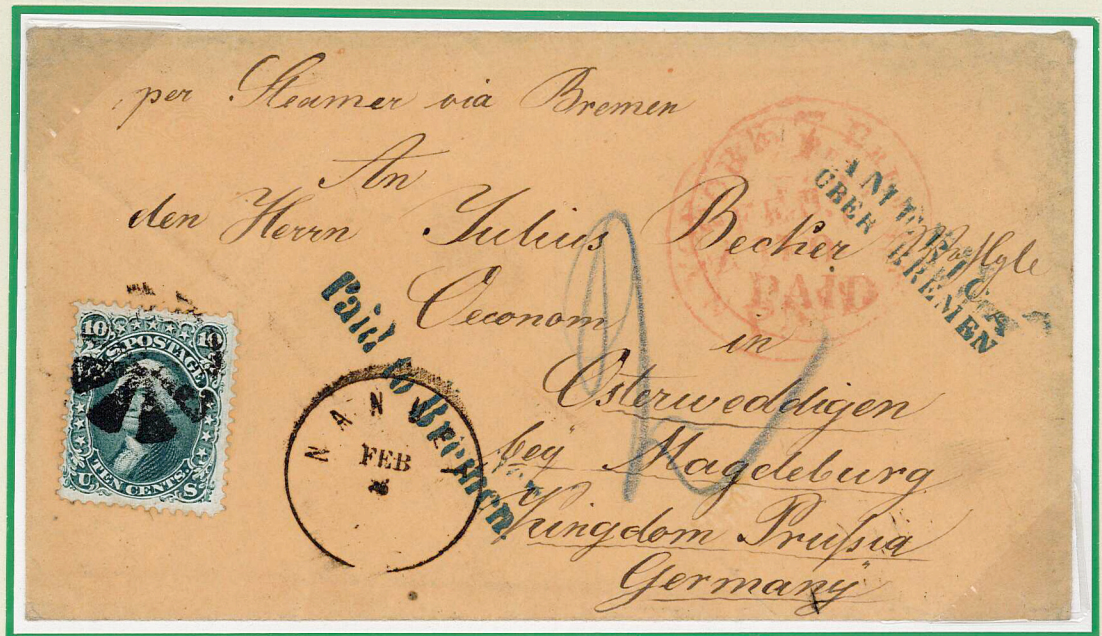 per Steamer via Bremen
An
den Herrn Julius Becher
Oeconom
in
Osterweddigen
bey Magdeburg
Kingdom Prußia
Germany
NEW YORK
PAID
AMERICA
ÜBER BREMEN
Paid to Bremen
FEB
10 10
U.S. POSTAGE
TEN CENTS.
U S